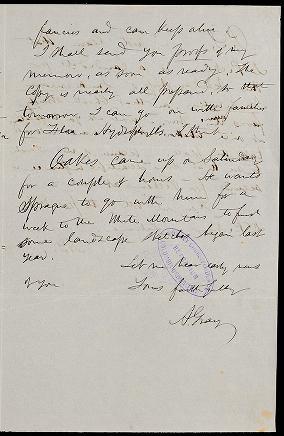 fancies and can keep alive
I shall send you proofs of my
memoir, as soon as ready. The
Copy is nearly all prepared, so that
tomorrow I can go on with
for
Oakes came up on Saturday
for a couple of hours - He wants
Sprague to go with him for a
week to the White Mountains to find
some landscape sketches begun last
year.
Let me hear early news
of you
Yours faithfully
A Gray